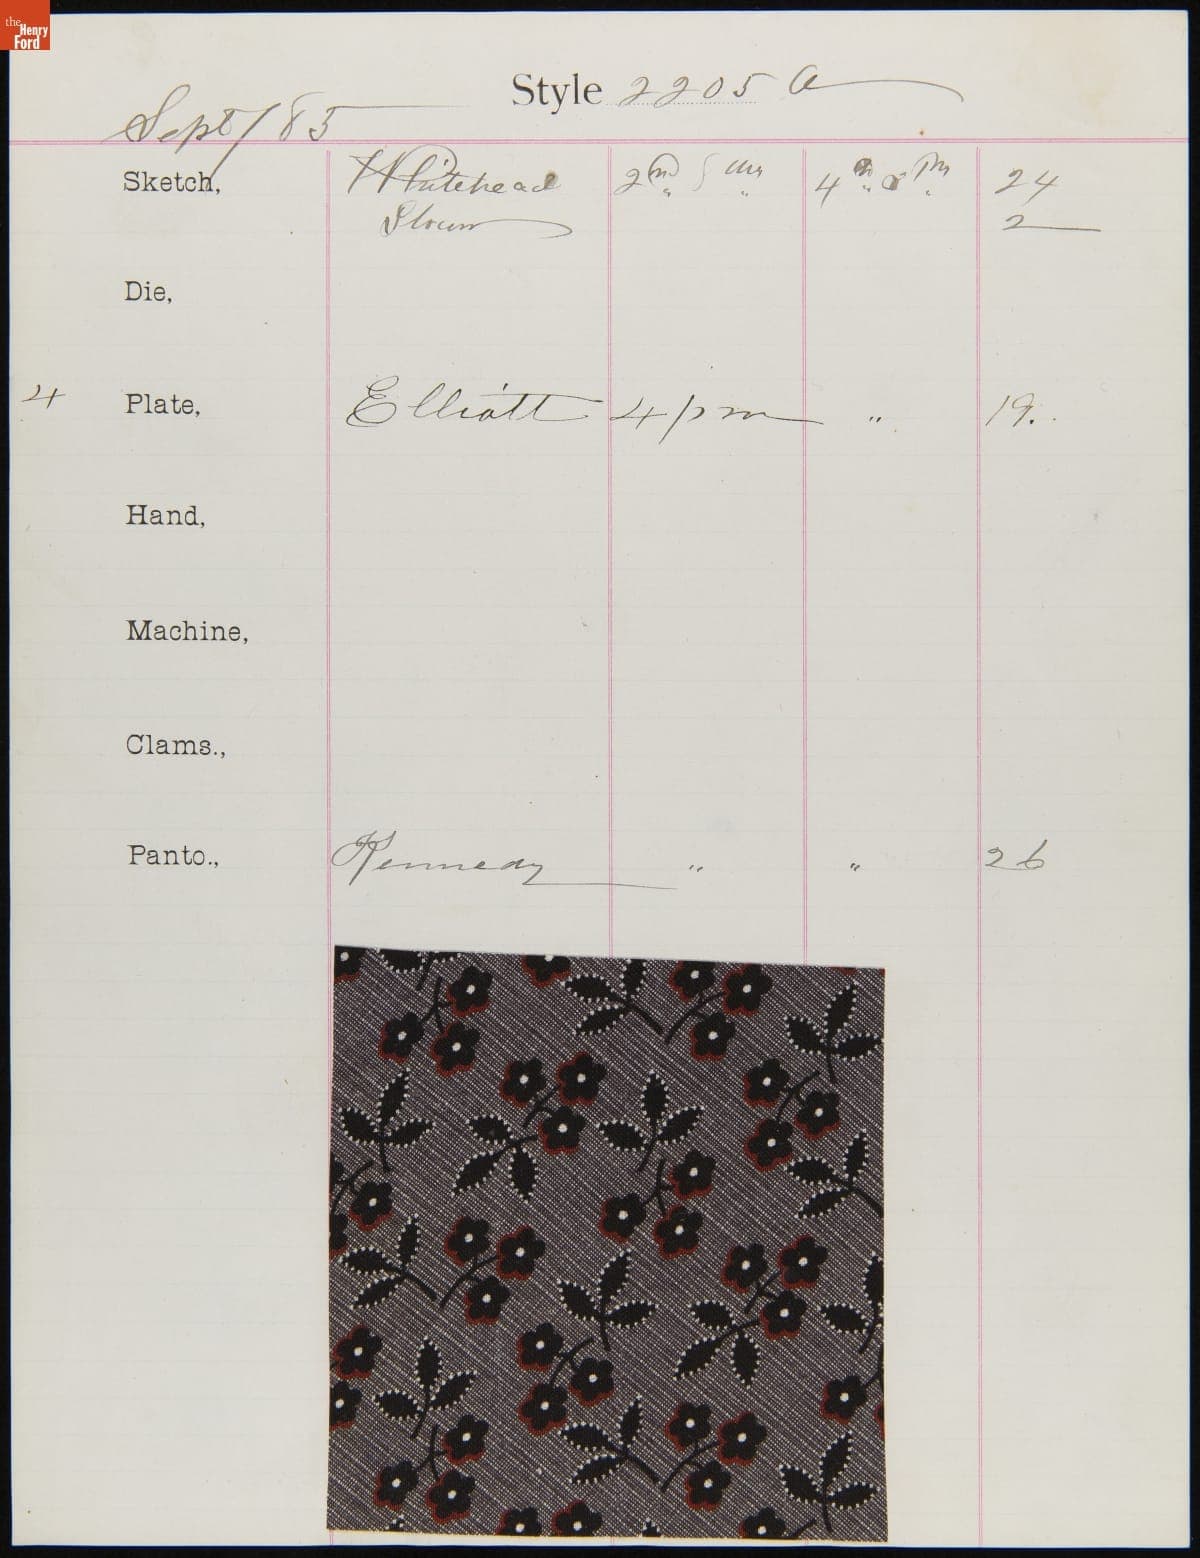 the
Henry
Ford
Style 2205 a
Sept/85
Sketch, Whitehead 24
2
Die,
4 Plate, Elliott 4/pm " 19.
Hand,
Machine,
Clams.,
Panto., Kennedy " " 26